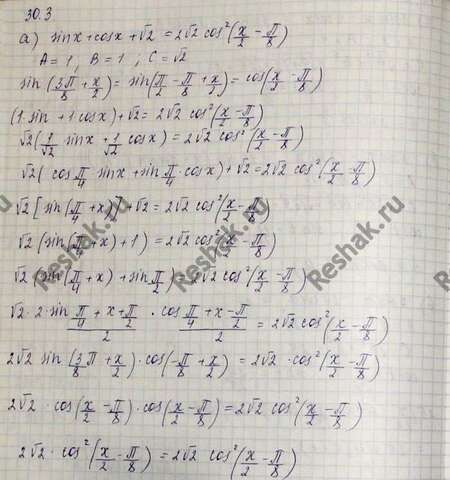 30.3
а) sinx + cosx + √2 = 2√2 cos²(x/2 − π/8)
A = 1, B = 1; C = √2
sin(3π/8 + x/2) = sin(π/2 − π/8 + x/2) = cos(x/2 − π/8)
(1·sin + 1 cosx) + √2 = 2√2 cos²(x/2 − π/8)
√2(1/√2 sinx + 1/√2 cosx) = 2√2 cos²(x/2 − π/8)
√2(cos π/4 sinx + sin π/4 · cosx) + √2 = 2√2 cos²(x/2 − π/8)
√2[sin(π/4 + x)] + √2 = 2√2 cos²(x/2 − π/8)
√2(sin(π/4 + x) + 1) = 2√2 cos²(x/2 − π/8)
√2(sin(π/4 + x) + sin π/2) = 2√2 cos²(x/2 − π/8)
√2 · 2 · sin (π/4 + x + π/2)/2 · cos (π/4 + x − π/2)/2 = 2√2 cos²(x/2 − π/8)
2√2 sin(3/8 π + x/2) · cos(−π/8 + x/2) = 2√2 · cos²(x/2 − π/8)
2√2 · cos(x/2 − π/8) · cos(x/2 − π/8) = 2√2 cos²(x/2 − π/8)
2√2 · cos²(x/2 − π/8) = 2√2 cos²(x/2 − π/8)
Reshak.ru
Reshak.ru
Reshak.ru